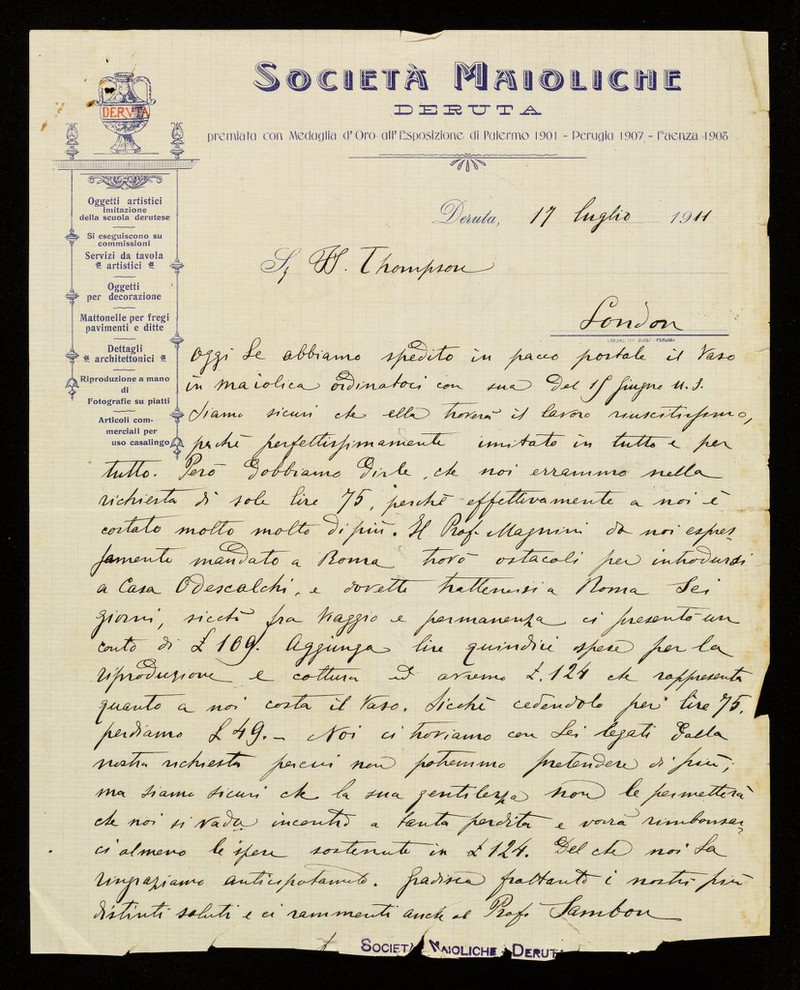 SOCIETÀ MAIOLICHE
DERUTA
premiata con Medaglia d'Oro all'Esposizione di Palermo 1901 - Perugia 1907 - Faenza 1908
DERVTA
Oggetti artistici
imitazione
della scuola derutese
Si eseguiscono su
commissioni
Servizi da tavola
artistici
Oggetti
per decorazione
Mattonelle per fregi
pavimenti e ditte
Dettagli
architettonici
Riproduzione a mano
di
Fotografie su piatti
Articoli com-
merciali per
uso casalingo
Deruta, 17 luglio 1911
Sg W. Thompson
London
Oggi Le abbiamo spedito in pacco postale il Vaso
in maiolica ordinatoci con sua del 15 Giugno u.s.
Siamo sicuri che ella troverà il lavoro riuscitissimo,
perchè perfettissimamente imitato in tutto e per
tutto. Però dobbiamo dirle, che noi errammo nella
richiesta di sole lire 75, perchè effettivamente a noi è
costato molto molto di più. Il Prof. Magnini da noi espres
samente mandato a Roma trovò ostacoli per introdursi
a Casa Odescalchi, e dovette trattenersi a Roma Sei
giorni, sicchè fra Viaggio e permanenza ci presentò un
conto di £ 109. Aggiunga lire quindici spese per la
riproduzione e cottura ed avremo £. 124 che rappresenta
quanto a noi costa il Vaso. Sicchè cedendolo per lire 75,
perdiamo £ 49. - Noi ci troviamo con Lei legati dalla
nostra richiesta per cui non potremmo pretendere di più;
ma siamo sicuri che la sua gentilezza non le permetterà
che noi si vada incontro a tanta perdita e vorrà rimborsar
ci almeno le spese sostenute in £ 124. Del che noi La
ringraziamo anticipatamente. Gradisca frattanto i nostri più
distinti saluti e ci rammenti anche al Prof. Sambon
SOCIETÀ MAIOLICHE DERUTA